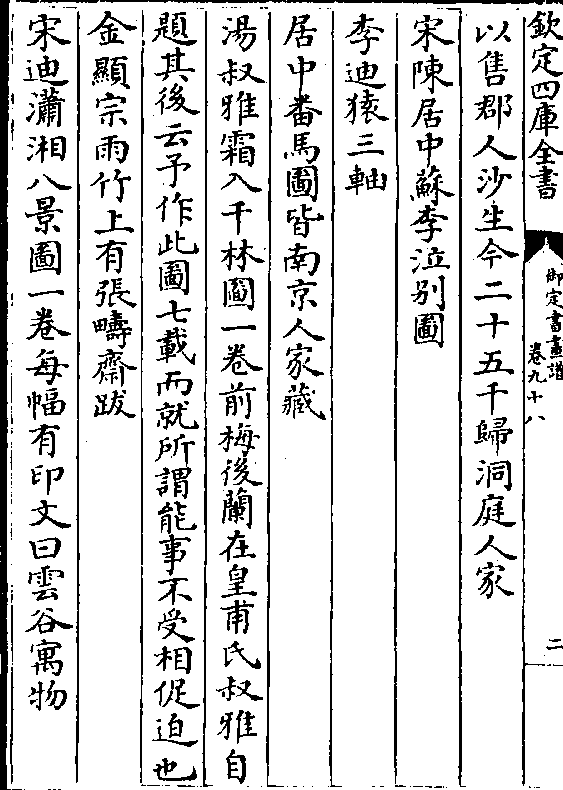 欽定四庫全書
御定書畫譜
卷九十八
二
以售郡人沙生今二十五千歸洞庭人家
宋陳居中蘇李泣别圖
李迪猿三軸
居中番馬圖皆南京人家藏
湯叔雅霜入千林圖一卷前梅後蘭在皇甫氏叔雅自
題其後云予作此圖七載而就所謂能事不受相促迫也
金顯宗雨竹上有張疇齋跋
宋迪瀟湘八景圖一卷每幅有印文曰雲谷寓物